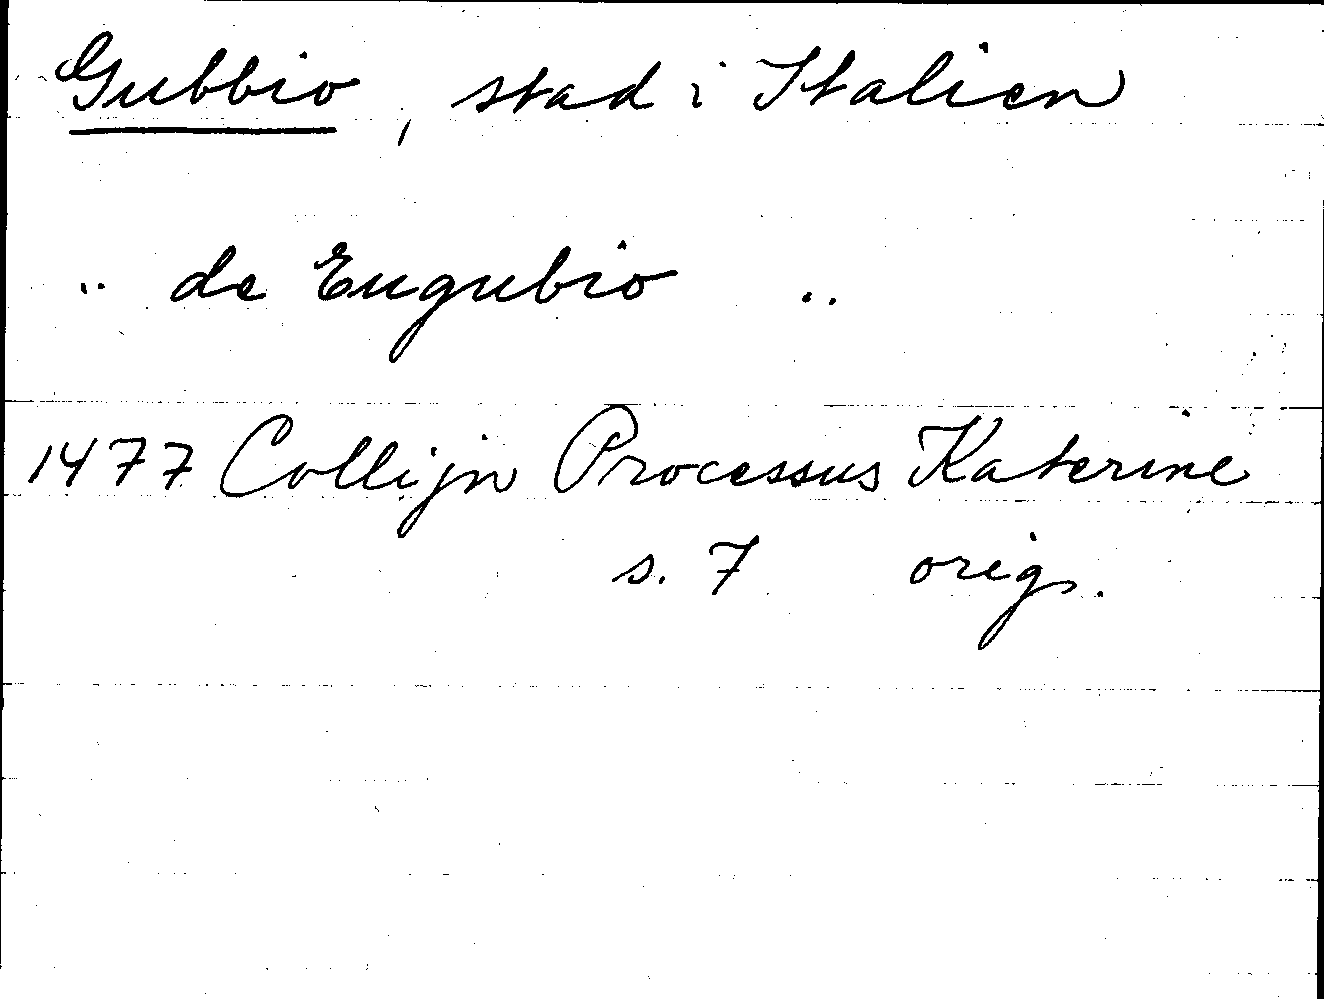 Gubbio, stad i Italien
.. de Eugubio ..
1477 Collijn Processus Katerine
s. 7 orig.